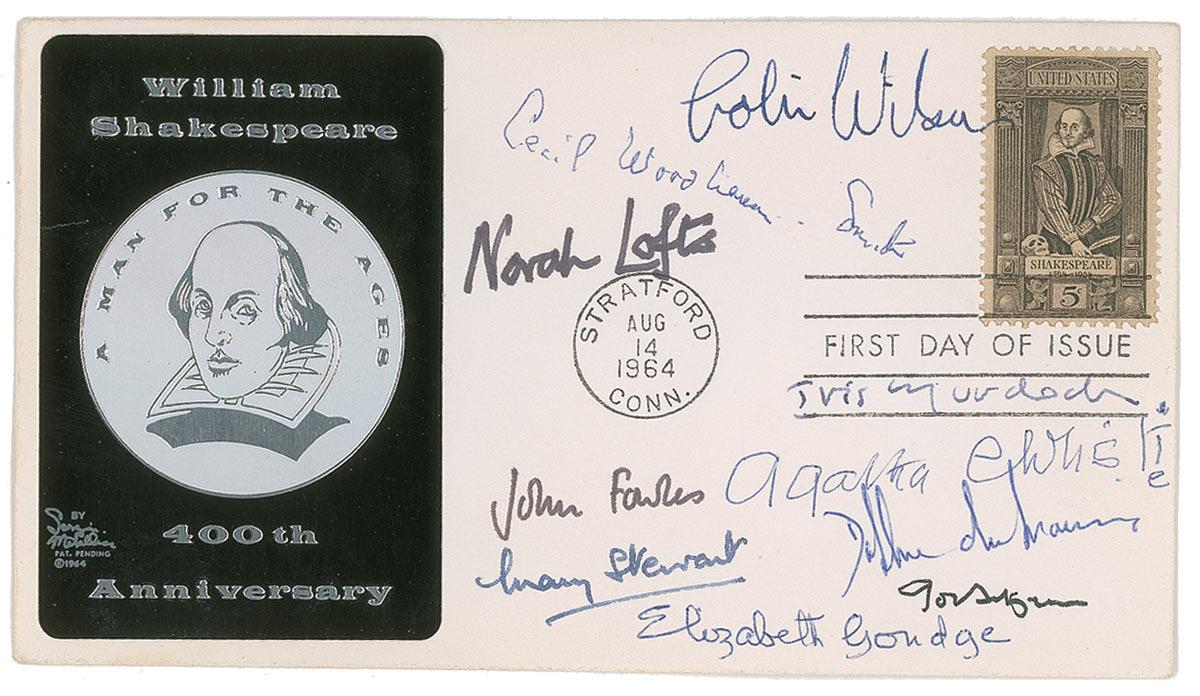 William
Shakespeare
A MAN FOR THE AGES
400th
Anniversary
BY
PAT. PENDING
©1964
Colin Wilson
Cecil Woodham-Smith
Norah Lofts
UNITED STATES
SHAKESPEARE
1564-1964
5c
STRATFORD
AUG
14
1964
CONN.
FIRST DAY OF ISSUE
Iris Murdoch
Agatha Christie
John Fowles
Daphne du Maurier
Mary Stewart
Elizabeth Goudge